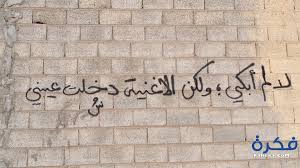 لا لم أبكي ؛ ولكن الاغنية دخلت عيني
فكرة